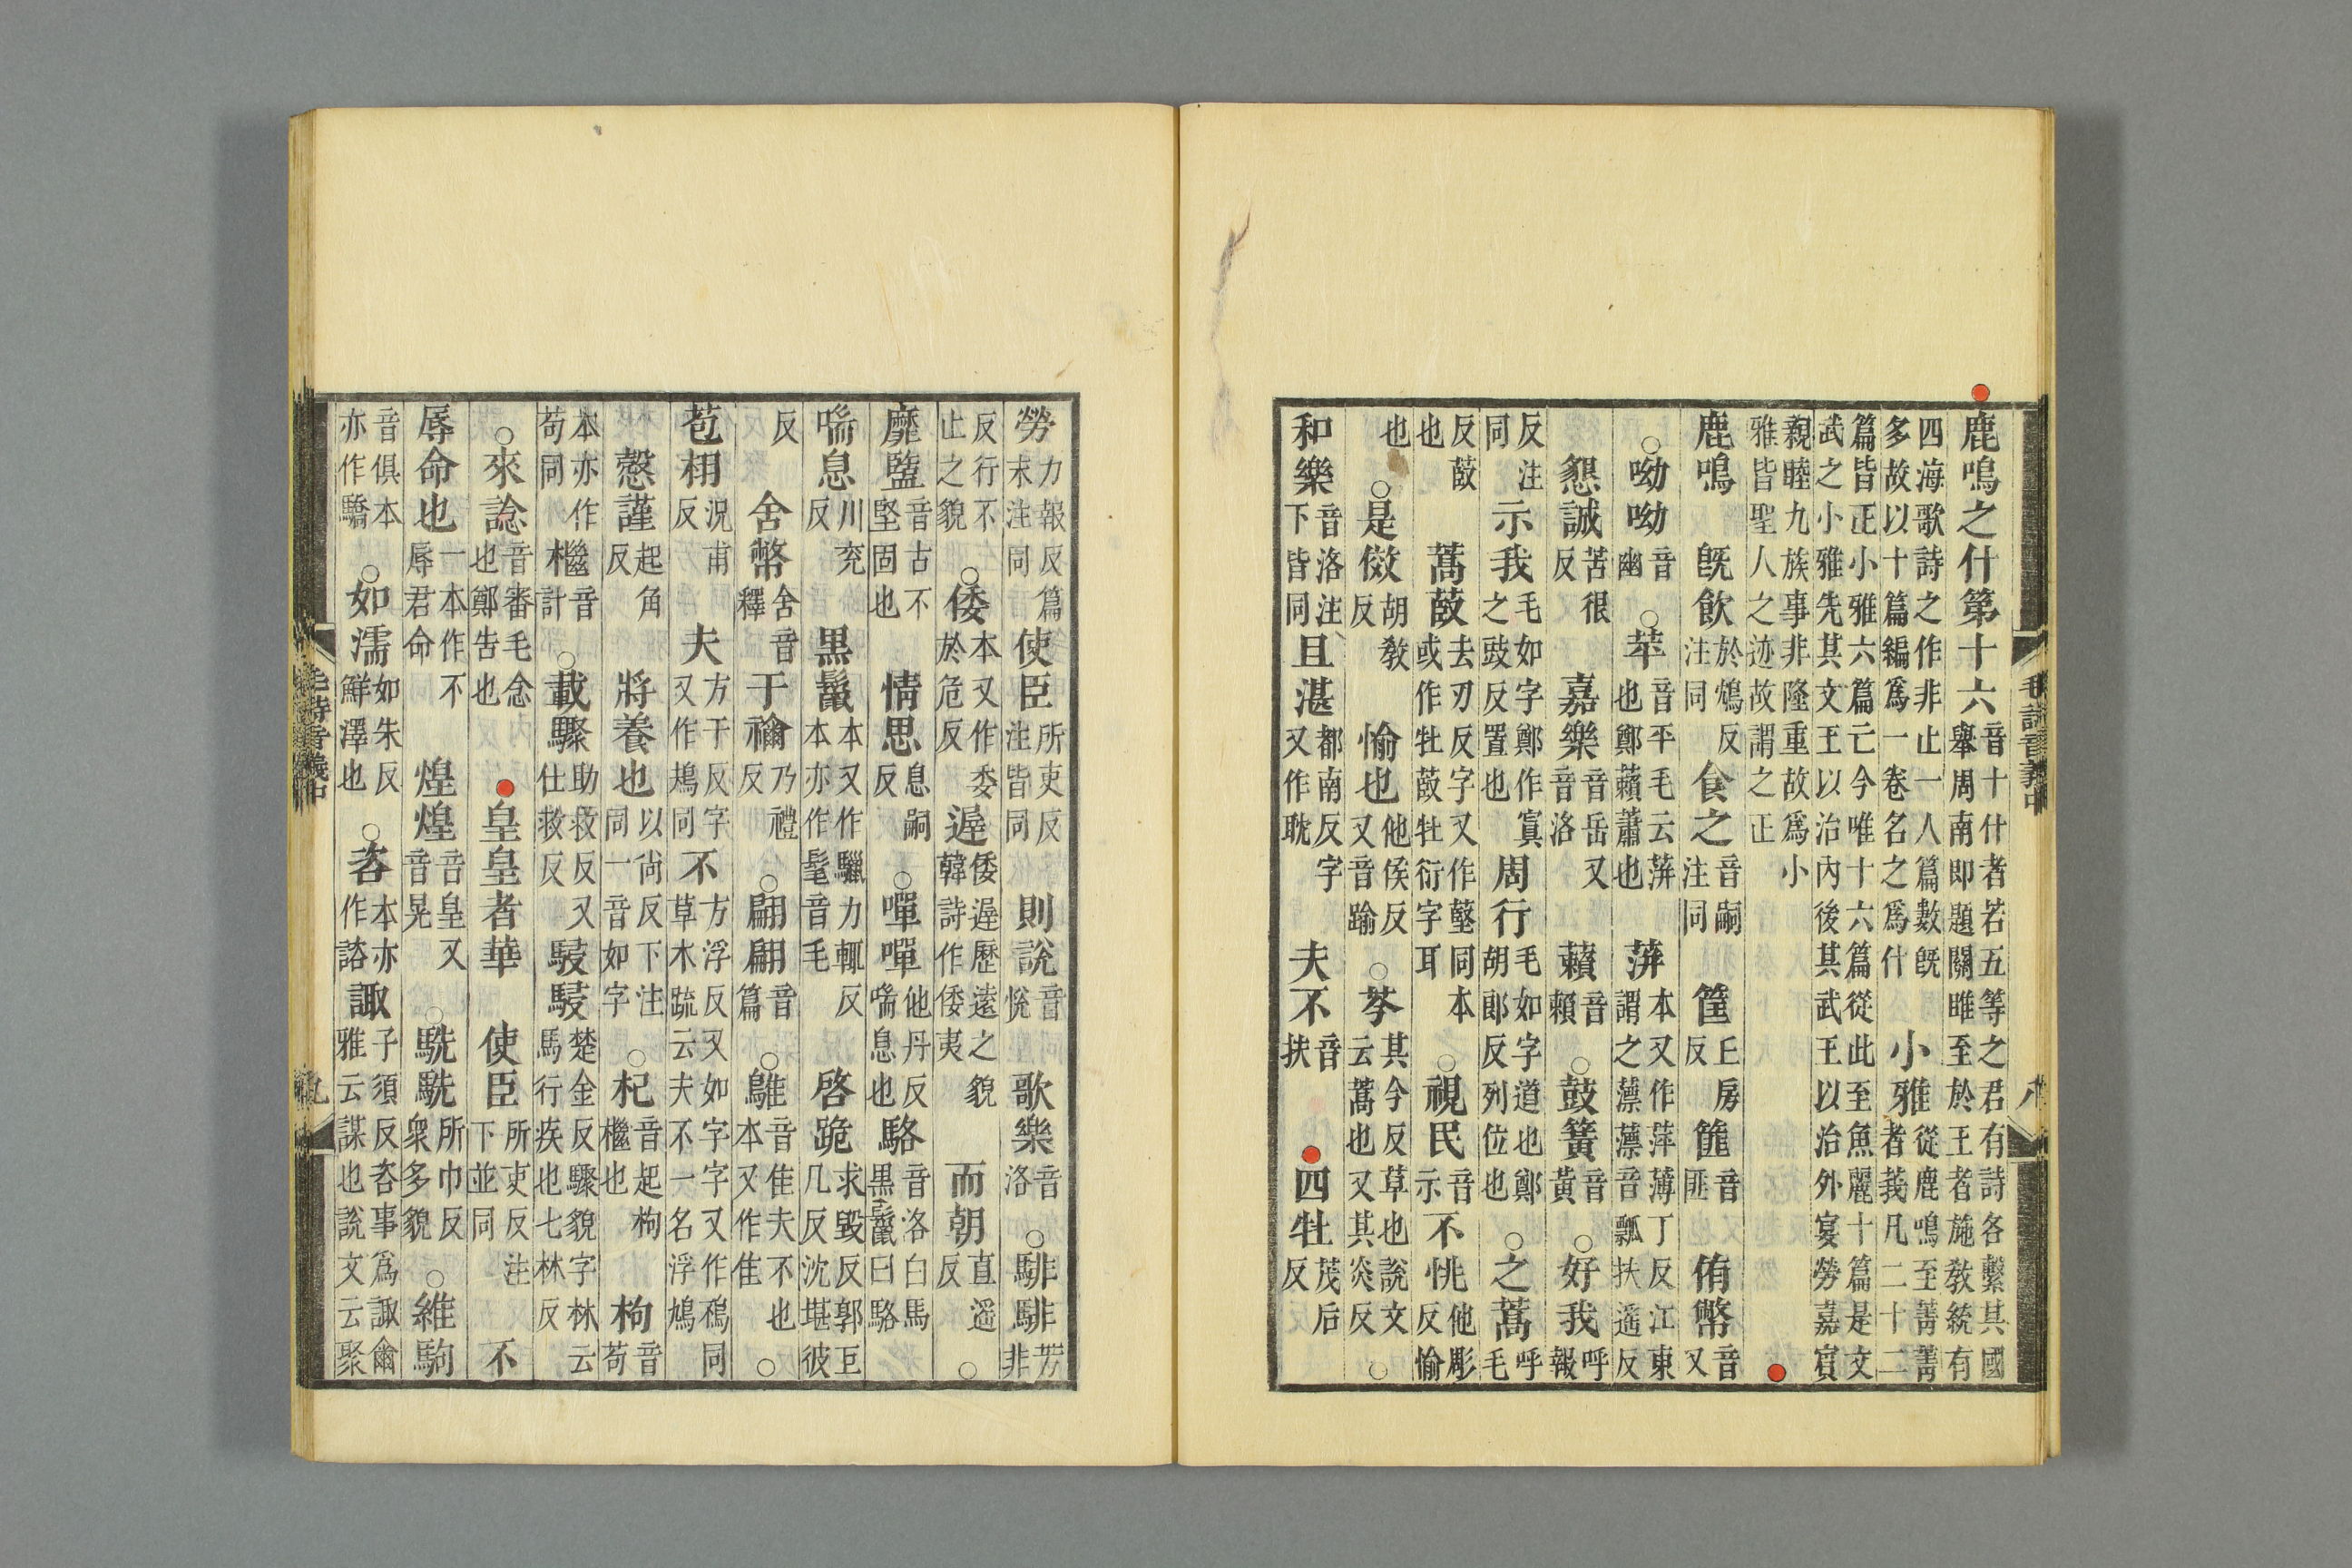 鹿鳴之什第十六音十什者若五等之君有詩各繫其國舉周南即題關雎至於王者施敎統有
四海歌詩之作非止一人篇數旣多故以十篇編爲一卷名之爲什小雅從鹿鳴至菁菁者莪凡二十二
篇皆正小雅六篇亡今唯十六篇從此至魚麗十篇是文武之小雅先其文王以治內後其武王以治外宴勞嘉賓
親睦九族事非隆重故爲小雅皆聖人之迹故謂之正
鹿鳴旣飲於鴆反注同食之音嗣注同筐丘房反篚音匪侑幣音又
○呦呦音幽○苹音平毛云蓱也鄭藾蕭也蓱本又作萍薄丁反江東謂之薸薸音瓢扶遥反
懇誠苦很反嘉樂音岳又音洛藾音賴○鼓簧音黃○好我呼報
反注同示我毛如字鄭作寘之豉反置也周行毛如字道也鄭胡郎反列位也○之蒿呼毛
反菣也蒿菣去刃反字又作同本或作牡菣牡衍字耳○視民音示不恌他彫反愉
也○是傚胡敎反愉也他侯反又音踰○芩其今反草也說文云蒿也又其炎反○
和樂音洛注下皆同且湛都南反字又作耽夫不音扶四牡茂后反
毛詩音義中 八
勞力報反篇末注同使臣所吏反注皆同則說音悅歌樂音洛○騑騑芳非
反行不止之貌○倭本又作委於危反遲倭遲歷遠之貌韓詩作倭夷而朝直遥反○
靡盬音古不堅固也情思息嗣反○嘽嘽他丹反喘息也駱音洛白馬黑鬣曰駱
喘息川兖反黑鬣本又作驪力輒反本亦作髦音毛啓跪求毀反郭巨几反沈堪彼
反舍幣舍音釋于禰乃禮反○翩翩音篇○鵻音隹夫不也本又作隹○
苞栩況甫反夫方于反字又作鳺同不方浮反又如字字又作鴀同草木疏云夫不一名浮鳩
愨謹起角反將養也以尙反下注同一音如字○杞音起枸檵也枸音苟
本亦作苟同檵音計○載驟助救反又仕救反駸駸楚金反驟貌字林云馬行疾也七林反
○來諗音審毛念也鄭告也皇皇者華使臣所吏反注下並同不
辱命也一本作不辱君命煌煌音皇又音晃○駪駪所巾反衆多貌○維駒
音俱本亦作驕○如濡如朱反鮮澤也○咨本亦作諮諏子須反咨事爲諏爾雅云謀也說文云聚
毛詩音義中 九